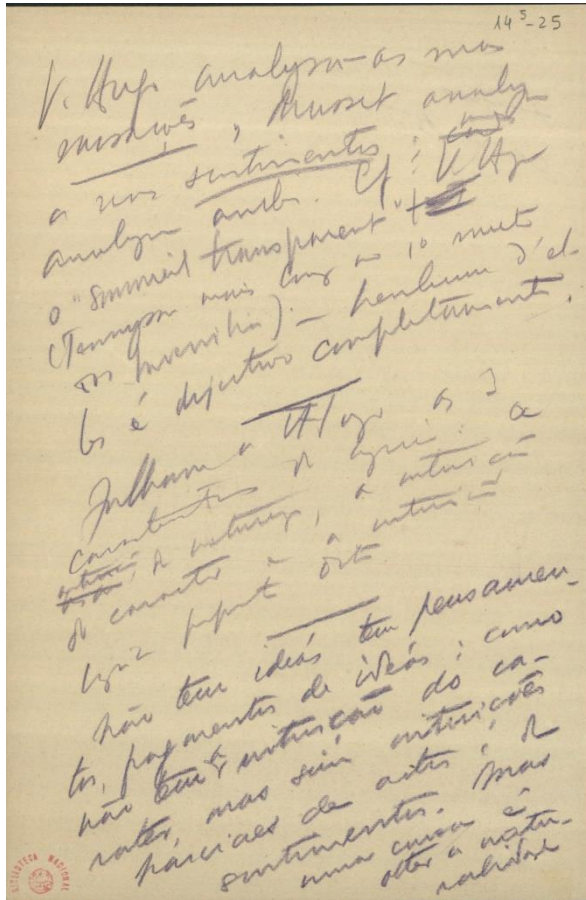 14⁵-25
V. Hugo analysa-as nas
sensações, Musset analy-
a nos sentimentos;
analysa ambos. Cf: V. Hugo
o "sommeil transparent"
(Tennyson mais longe no 1º
os juvenilia) — Nenhum d'el-
les é disjuntivo completamente.
Falham a Hugo as 3
caracteristicas do genio: a
intuição de natureza, a intuição
do caracter e a intuição
Não tem idéas tem pensamen-
tos, fragmentos de idéas; como
não tem a intuição do ca-
racter, mas sim intuições
parciaes de actos, de
sentimentos. Mas
uma cousa é
obter a natu-
ralidade
BIBLIOTECA NACIONAL